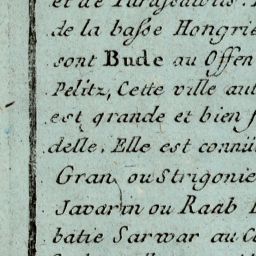 et de
de la basse Hongrie
sont Bude au Offen
Pelitz, Cette ville aut
est grande et bien f
delle. Elle est connüe
Gran ou Strigonie
Javarin ou Raab
bâtie Sarwar au C